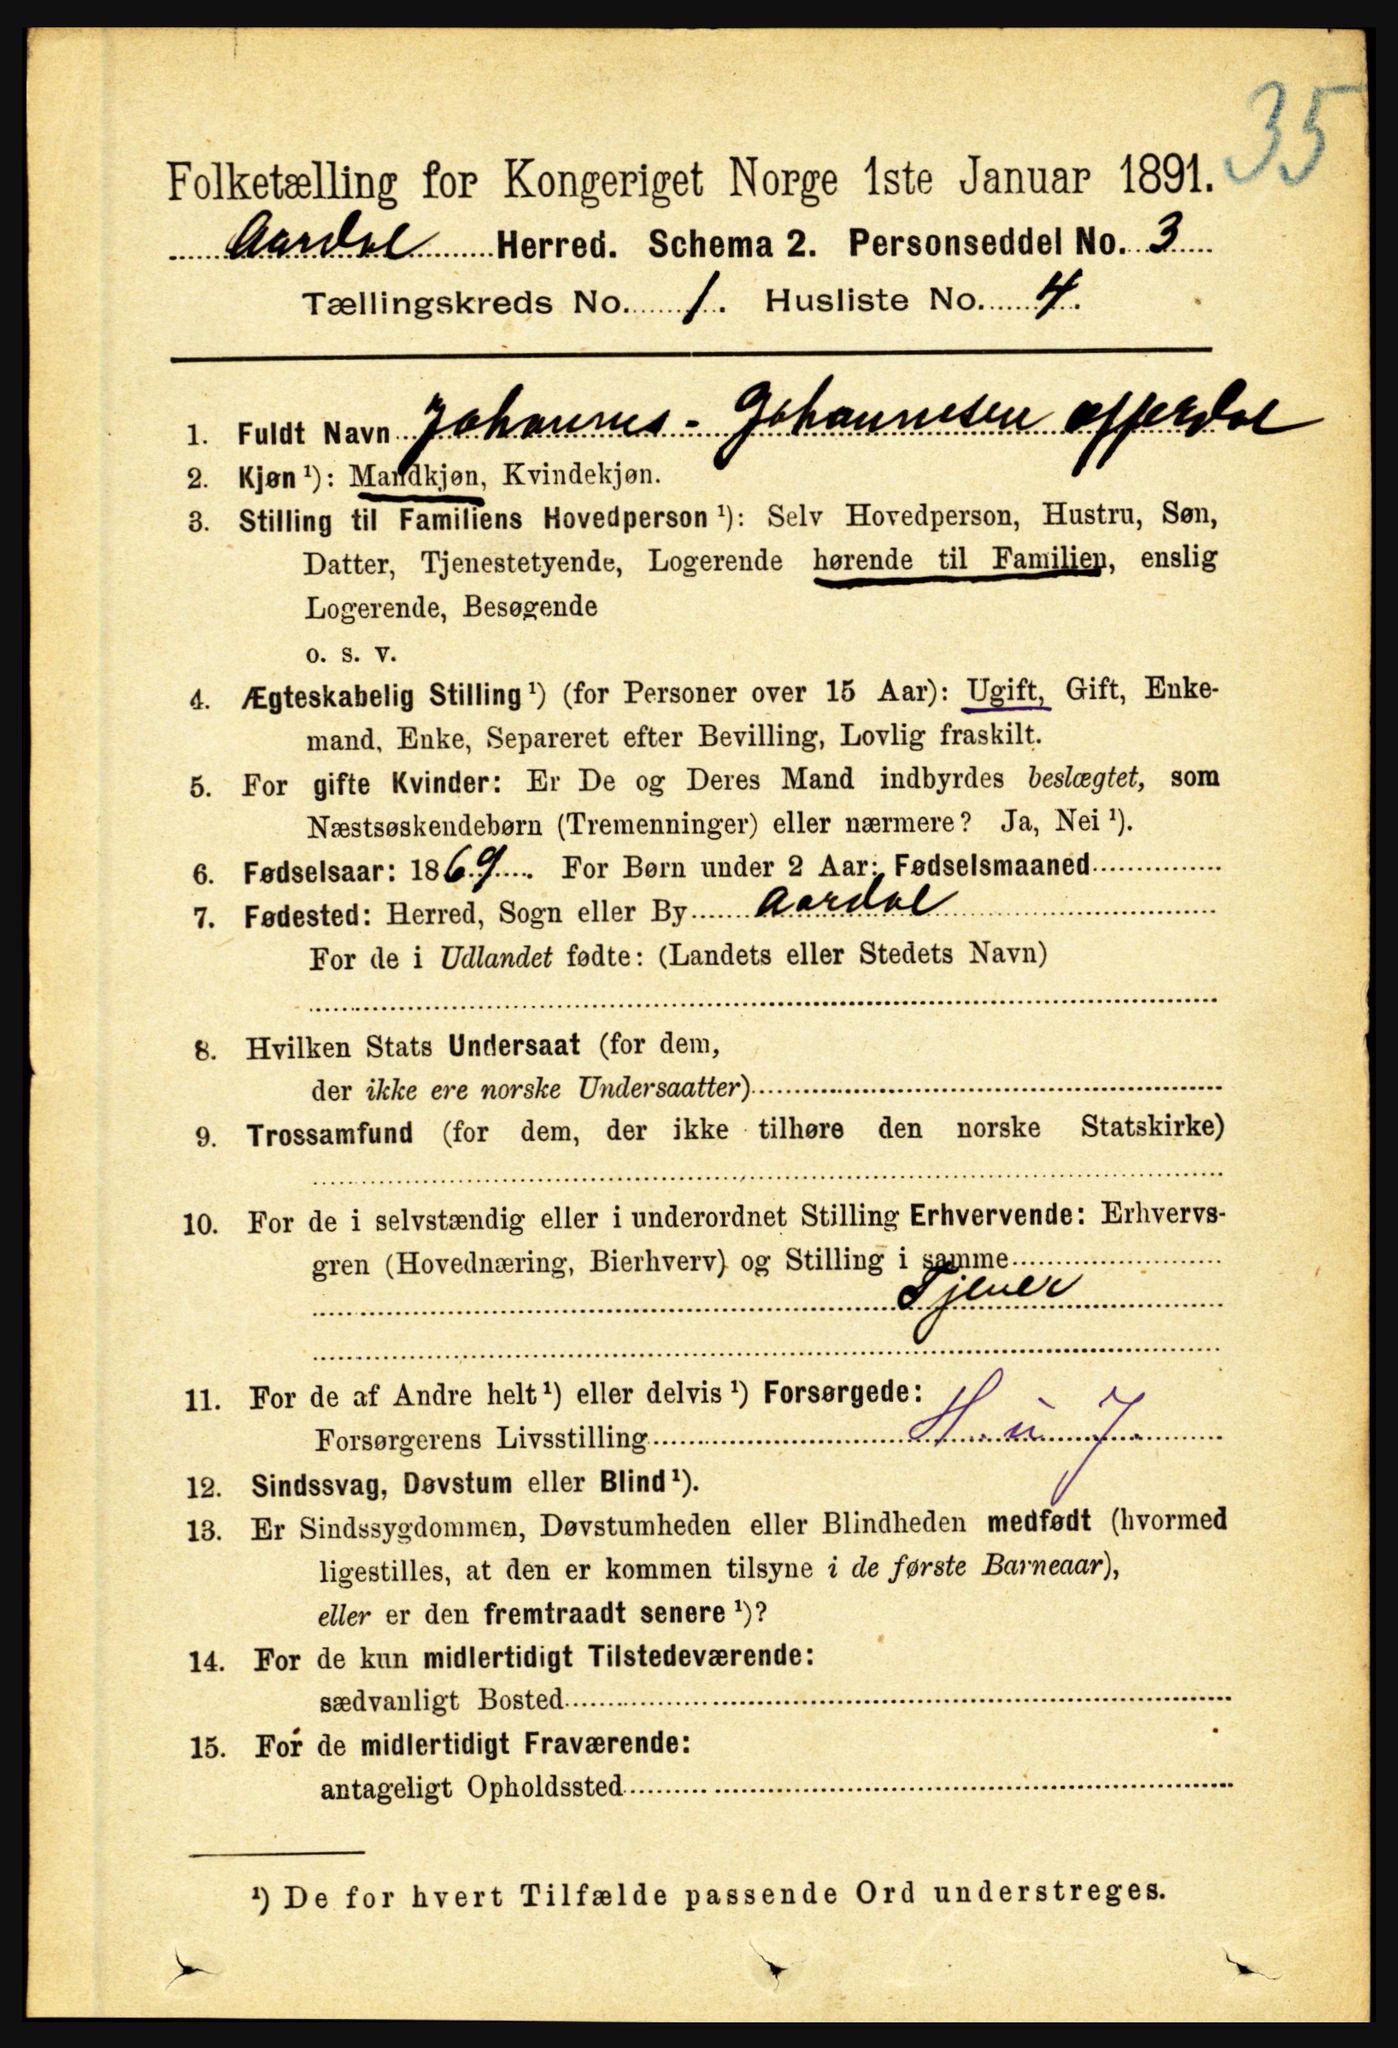 35
Folketælling for Kongeriget Norge 1ste Januar 1891.
Aardal Herred. Schema 2. Personseddel No. 3
Tællingskreds No. 1. Husliste No. 4.
1. Fuldt Navn Johannes - Johannesen Offerdal
2. Kjøn ¹): Mandkjøn, Kvindekjøn.
3. Stilling til Familiens Hovedperson ¹): Selv Hovedperson, Hustru, Søn,
Datter, Tjenestetyende, Logerende hørende til Familien, enslig
Logerende, Besøgende
o. s. v.
4. Ægteskabelig Stilling ¹) (for Personer over 15 Aar): Ugift, Gift, Enke-
mand, Enke, Separeret efter Bevilling, Lovlig fraskilt.
5. For gifte Kvinder: Er De og Deres Mand indbyrdes beslægtet, som
Næstsøskendebørn (Tremenninger) eller nærmere? Ja, Nei ¹).
6. Fødselsaar: 1869. For Børn under 2 Aar: Fødselsmaaned
7. Fødested: Herred, Sogn eller By Aardal
For de i Udlandet fødte: (Landets eller Stedets Navn)
8. Hvilken Stats Undersaat (for dem,
der ikke ere norske Undersaatter)
9. Trossamfund (for dem, der ikke tilhøre den norske Statskirke)
10. For de i selvstændig eller i underordnet Stilling Erhvervende: Erhvervs-
gren (Hovednæring, Bierhverv) og Stilling i samme
Tjener
11. For de af Andre helt ¹) eller delvis ¹) Forsørgede:
Forsørgerens Livsstilling H. u J.
12. Sindssvag, Døvstum eller Blind ¹).
13. Er Sindssygdommen, Døvstumheden eller Blindheden medfødt (hvormed
ligestilles, at den er kommen tilsyne i de første Barneaar),
eller er den fremtraadt senere ¹)?
14. For de kun midlertidigt Tilstedeværende:
sædvanligt Bosted
15. For de midlertidigt Fraværende:
antageligt Opholdssted
¹) De for hvert Tilfælde passende Ord understreges.